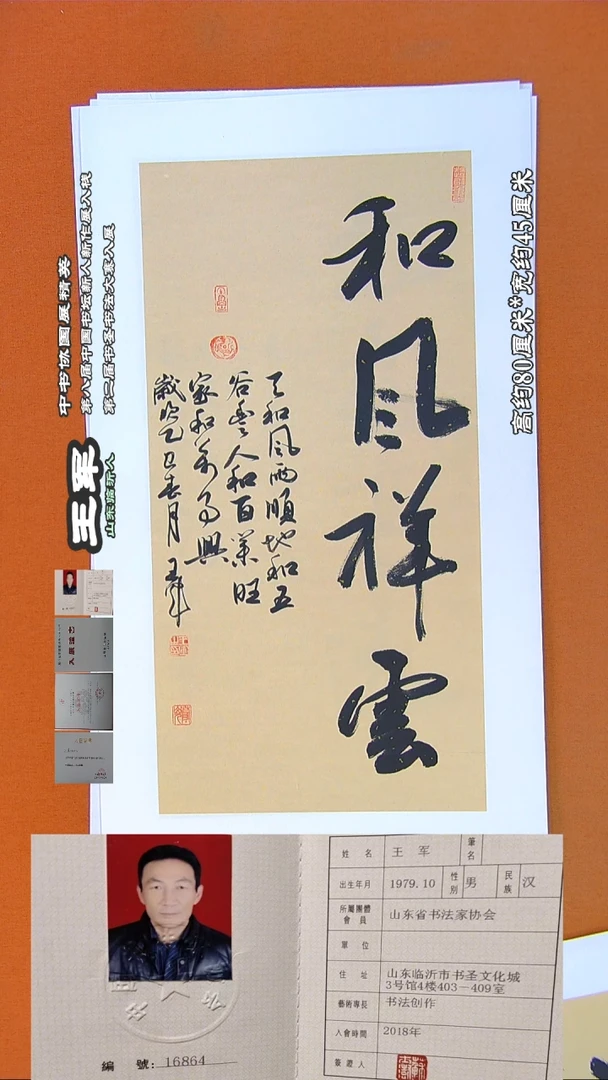 和风祥雲
天和风雨順地和五
谷豐人和百業旺
家和万事興
歲次乙巳春月王军
中书协国展精英
第八届中国书坛新人新作展入展
第二届书圣书法大赛入展
王军
山东临沂人
高约80厘米*宽约45厘米
姓名 王军 筆名
出生年月 1979.10 性别 男 民族 汉
所屬團體會員 山东省书法家协会
單位
住址 山东临沂市书圣文化城3号馆4楼403－409室
藝術專長 书法创作
入會時間 2018年
簽證人
編號:16864